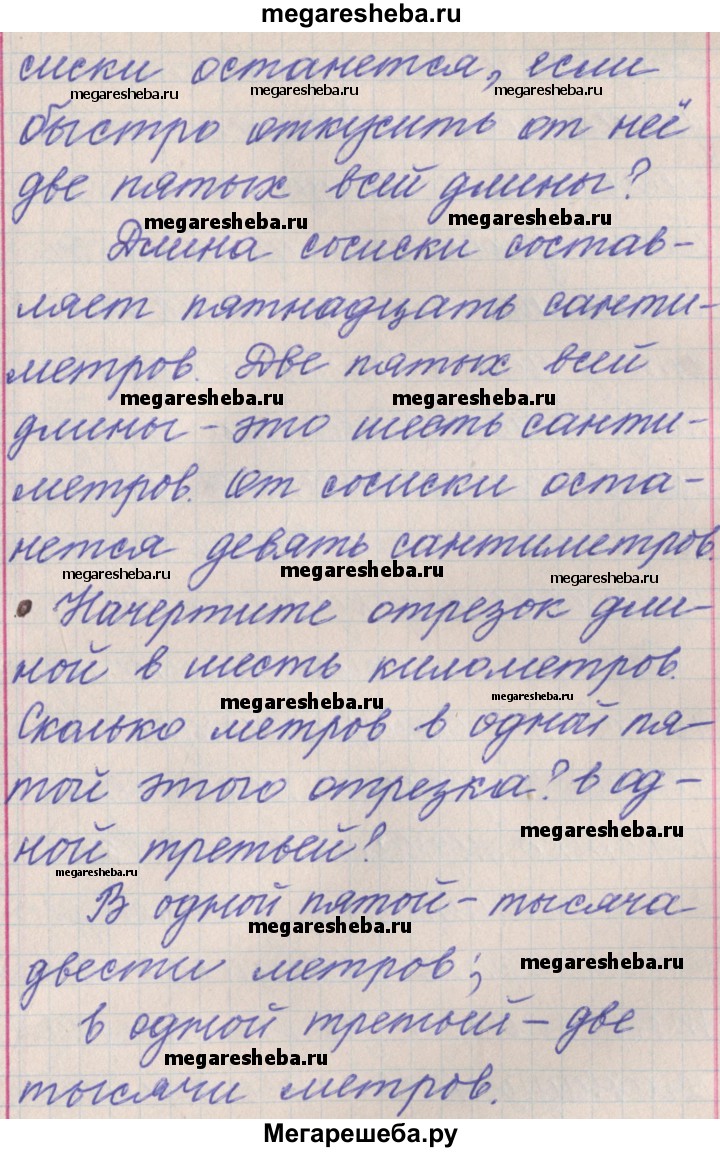 megaresheba.ru
сиски останется, если
megaresheba.ru megaresheba.ru megaresheba.ru
быстро откусить от неё
две пятых всей длины?
megaresheba.ru megaresheba.ru
Длина сосиски состав-
ляет пятнадцать санти-
метров. Две пятых всей
megaresheba.ru megaresheba.ru
длины – это шесть санти-
метров. От сосиски оста-
нется девять сантиметров.
megaresheba.ru megaresheba.ru megaresheba.ru
Начертите отрезок дли-
ной в шесть километров.
megaresheba.ru megaresheba.ru
Сколько метров в одной пя-
той этого отрезка? в од-
megaresheba.ru
ной третьей?
megaresheba.ru
В одной пятой – тысяча
megaresheba.ru
двести метров;
megaresheba.ru
в одной третьей – две
megaresheba.ru
тысячи метров.
Мегарешеба.ру